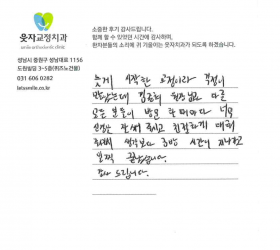 웃자교정치과
소중한 후기 감사드립니다.
함께 할 수 있었던 시간에 감사하며,
환자분들의 소리에 귀 기울이는 웃자치과가 되도록 하겠습니다.
성남시 중원구 성남대로 1156
도원빌딩 3~5층(퀴즈노건물)
031 606 0282
letssmile.co.kr
늦게 시작한 교정이라 걱정이
많았는데 원장님과 다른
모든 분들이 방문 할 때마다 너무
신경을 써 주시고 친절하게 대해
주셔서 생각보다 3년 시간이 지나가고
끝났습니다.
감사 드립니다.